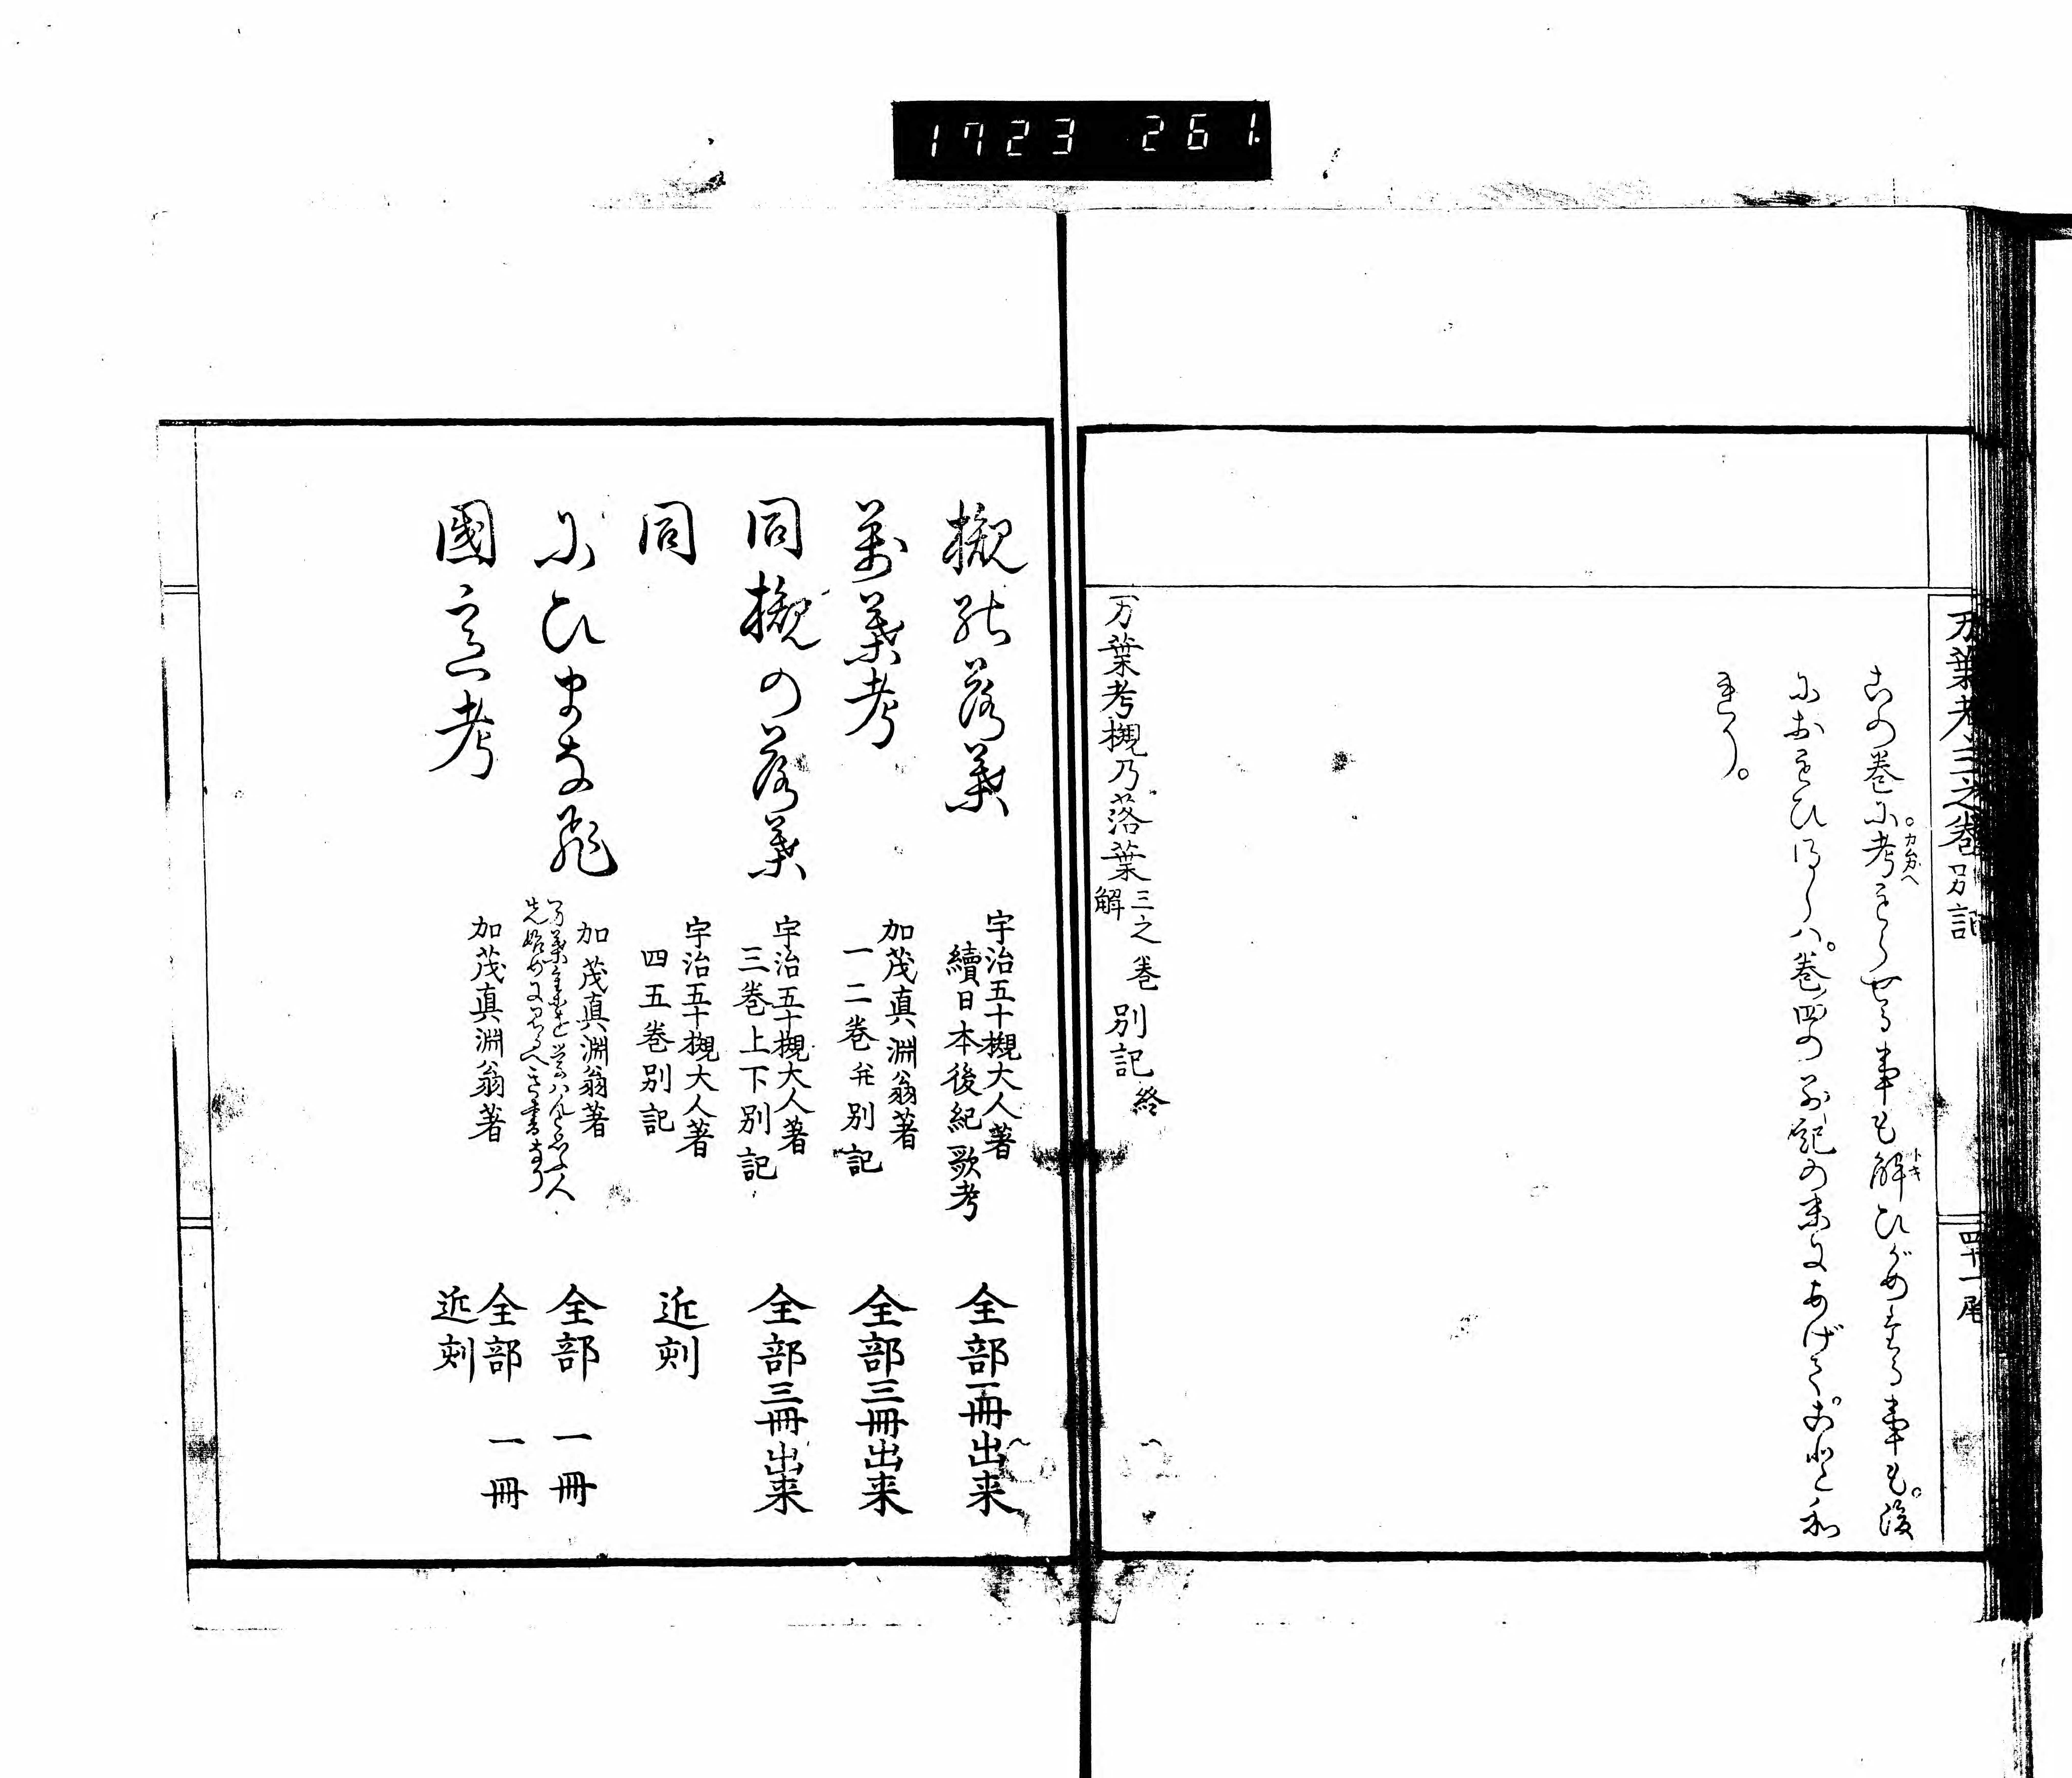 1723 261
万葉考三之巻別記
四十一尾
この巻に考もらせる事も解ひがめたる事も。後
におもひ得しハ。巻四の別記の末にあげて。ことわ
れり。
カムガヘ
トキ
万葉考槻乃落葉三之巻解別記終
槻能落葉
宇治五十槻大人著
續日本後紀歌考
全部一冊出来
萬葉考
加茂真淵翁著
一二巻并別記
全部三冊出来
同槻の落葉
宇治五十槻大人著
三巻上下別記
全部三冊出来
同
宇治五十槻大人著
四五巻別記
近刻
にひまなび
加茂真淵翁著
全部一冊
國意考
加茂真淵翁著
全部一冊
近刻